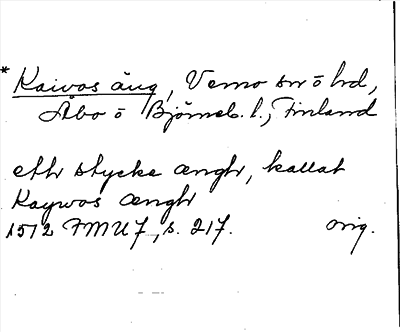 * Kaivos äng, Vemo sn o hd,
Åbo o Björneb. l., Finland
ett stycke ængh, kallat
Kaywos ængh
1512 FMU 7, s. 217. orig.